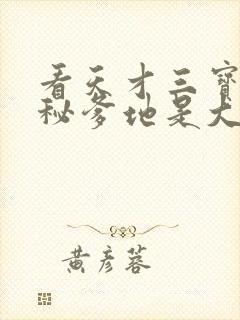 看天才三寶
秘爹地是大
黄彦蓉